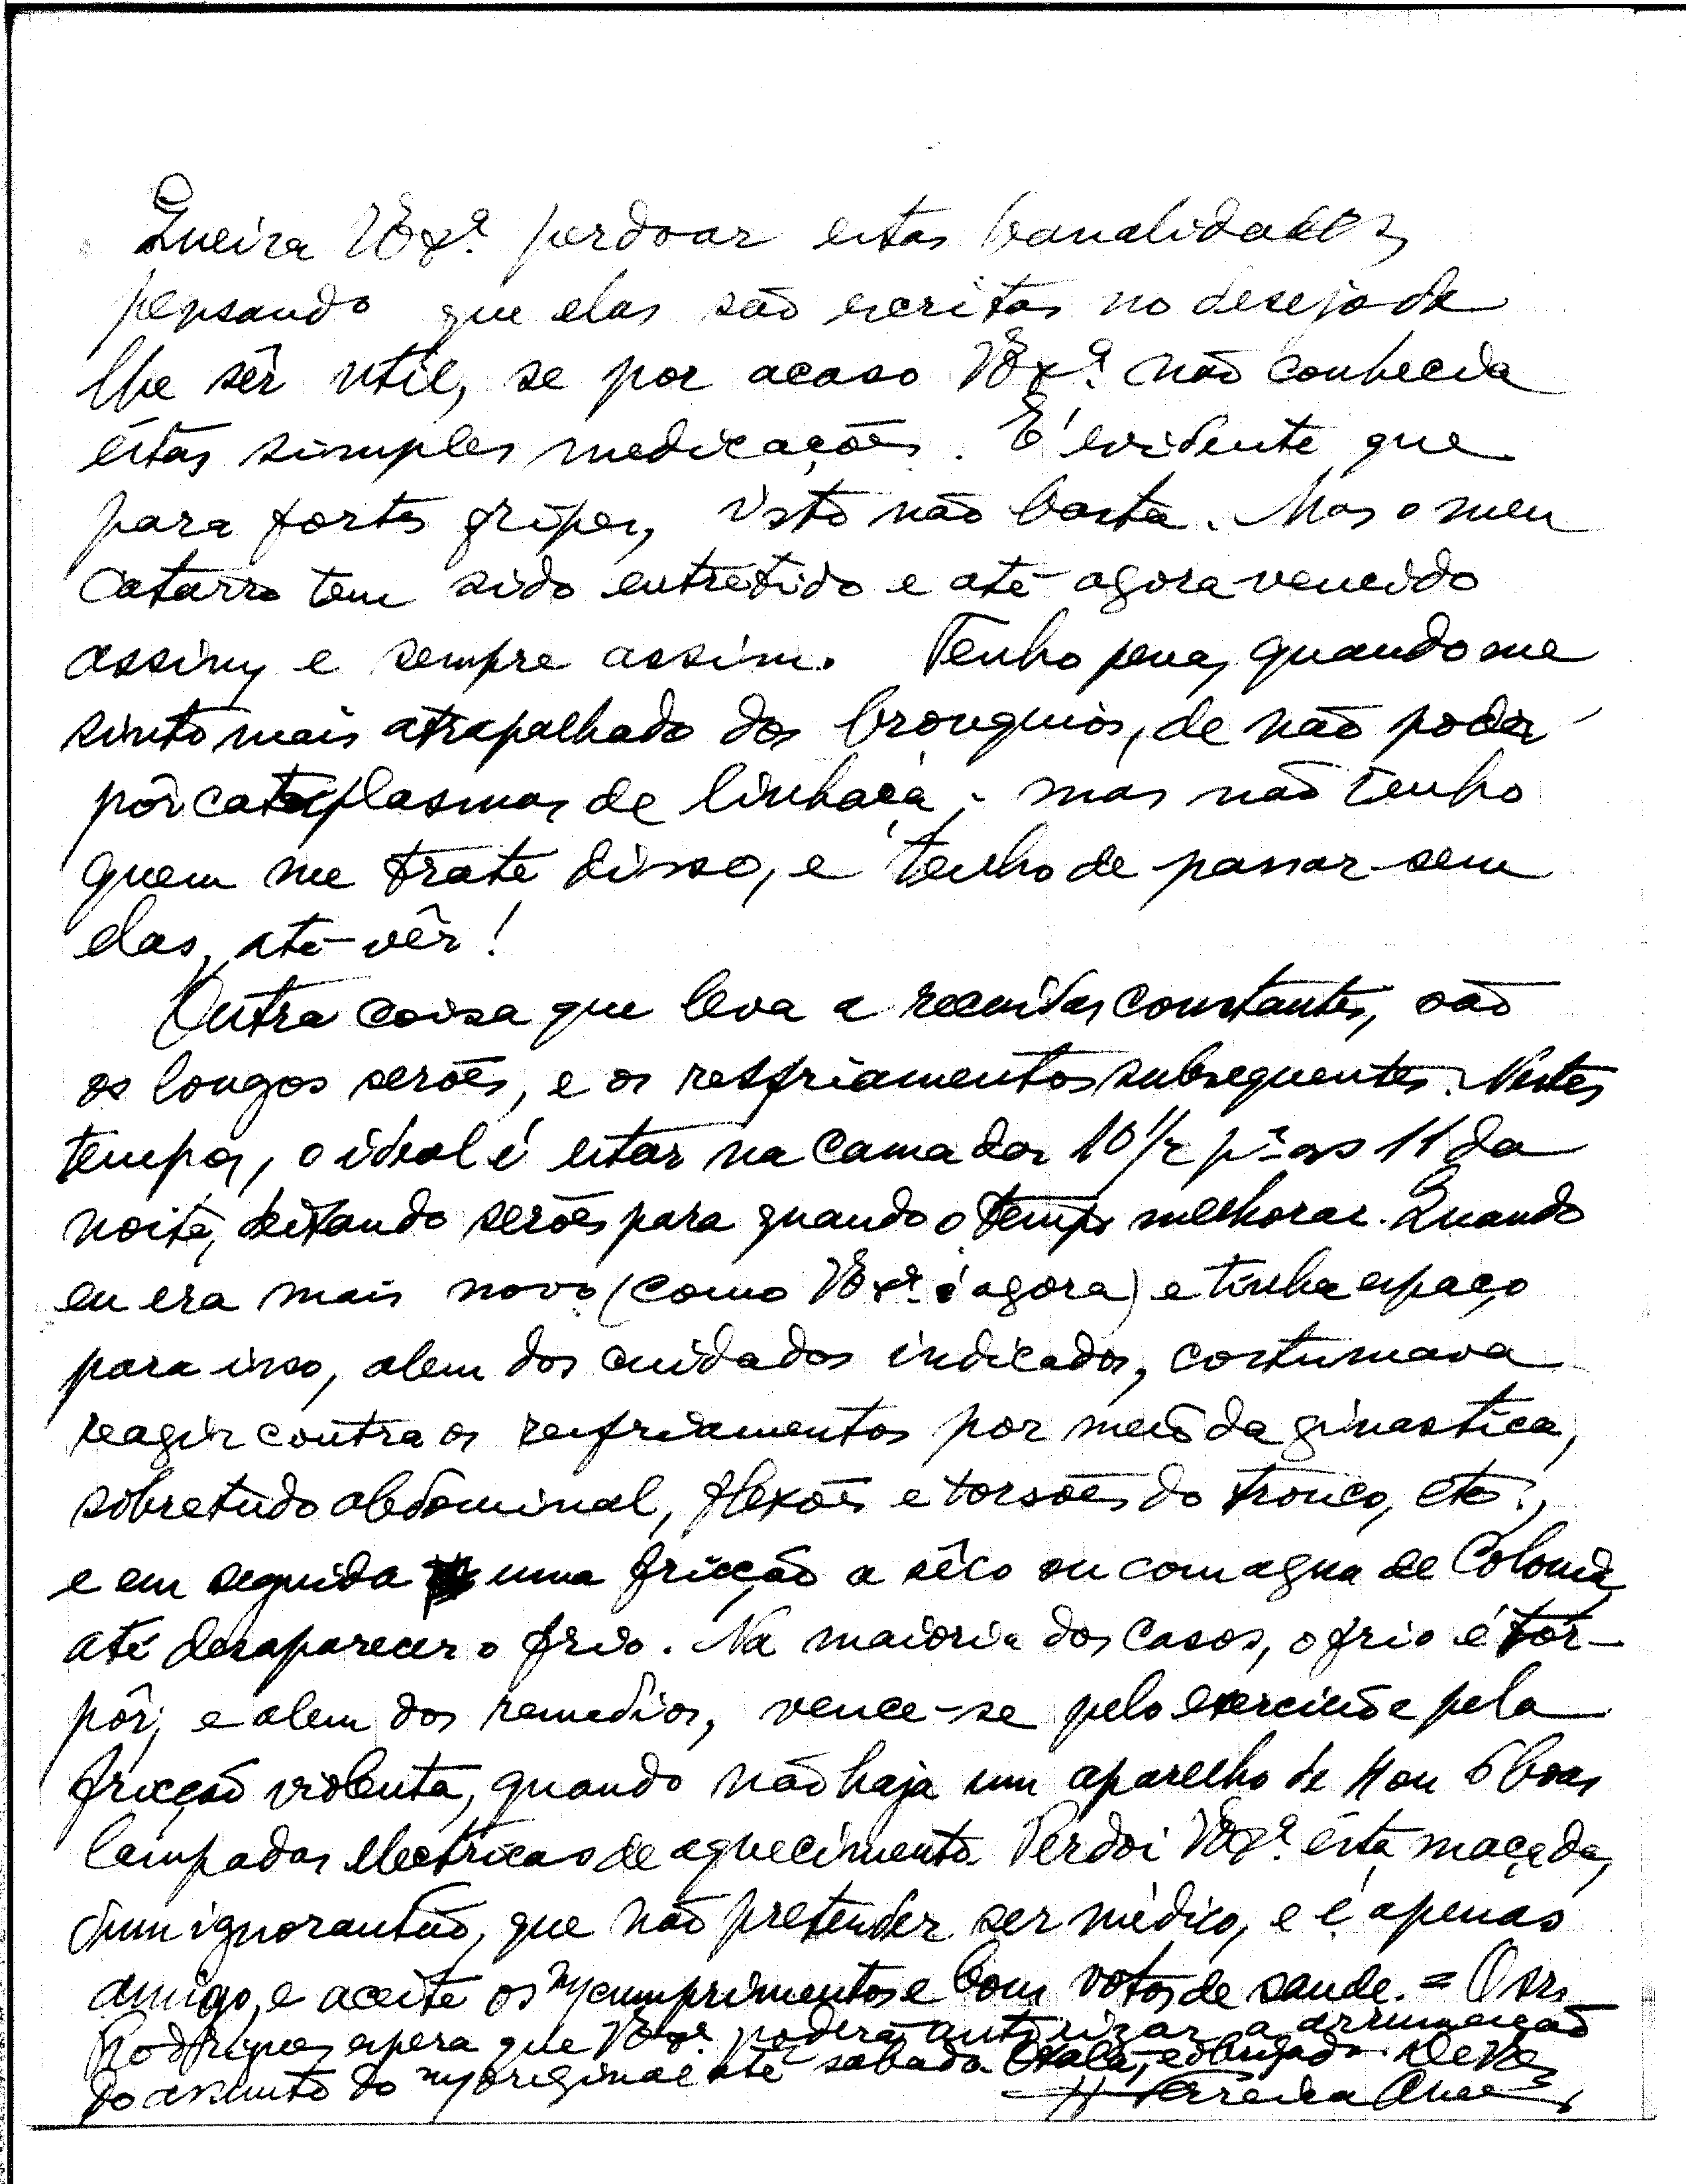 Queira VExª. perdoar estas banalidades,
pensando que elas são escritas no desejo de
lhe sêr util, se por acaso VExª. não conhecia
éstas simples medicações. É evidente que
para fortes gripes, isto não basta. Mas o meu
catarro tem sido entretido e até agora vencido
assim, e sempre assim. Tenho pena, quando me
sinto mais atrapalhado dos bronquios, de não poder
pôr cataplasmas de linhaça; mas não tenho
quem me trate disso, e tenho de passar sem
elas, até-vêr!
Outra coisa que leva a recaidas constantes, são
os longos serões, e os resfriamentos subsequentes. Nestes
tempos, o ideal é estar na cama das 10 1/2 pª as 11 da
noite, deixando serões para quando o tempo melhorar. Quando
eu era mais novo (como VExª. é agora) e tinha espaço
para isso, alem dos cuidados indicados, costumava
reagir contra os resfriamentos por meio da ginastica,
sobretudo abdominal, flexões e torsões do tronco, etc.,
e em seguida uma fricção a sêco ou com agua de Colonia,
até desaparecer o frio. Na maioria dos casos, o frio é tor-
pôr, e alem dos remedios, vence-se pelo exercicio e pela
fricção violenta, quando não haja um aparelho de 4 ou 6 boas
lampadas electricas de aquecimento. Perdoi VExª. ésta maçada,
dum ignorantão, que não pretender ser médico, e é apenas
amigo, e aceite os m/ cumprimentos e bons votos de saude. = O sr.
Rodrigues espera que VExª. poderá autorizar a arrumação
do assunto do m/ original até sabado. Oxalá, e obrigado. De VEx